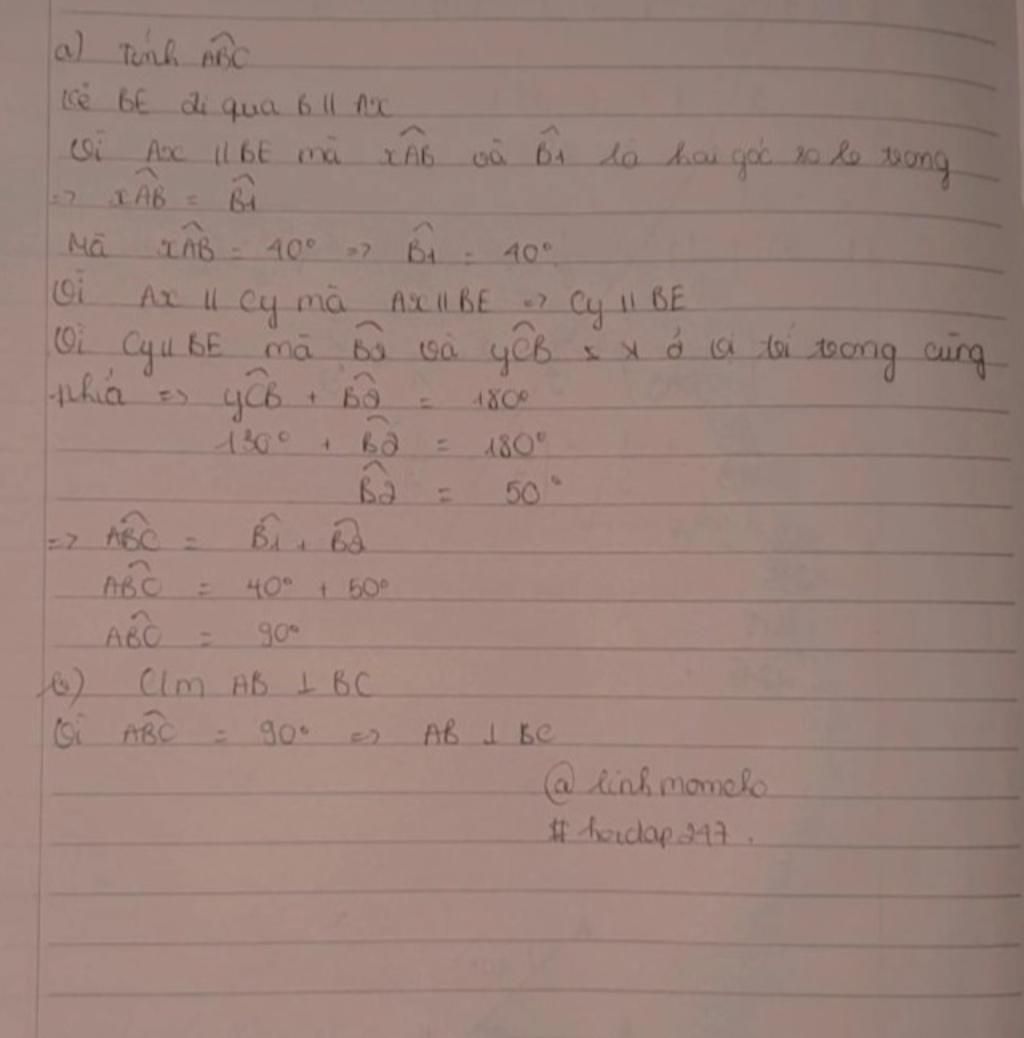 a) Tính ABC
Kẻ BE đi qua B || Ax
Vì Ax || BE mà xAB và B1 là hai góc so le trong
=> xAB = B1
Mà xAB = 40° => B1 = 40°
Vì Ax || Cy mà Ax || BE => Cy || BE
Vì Cy || BE mà B2 và yCB ở trong cùng
phía => yCB + B2 = 180°
130° + B2 = 180°
B2 = 50°
=> ABC = B1 + B2
ABC = 40° + 50°
ABC = 90°
b) C/m AB ⊥ BC
Vì ABC = 90° => AB ⊥ BC
@ linhmomoho
# hoidap247.